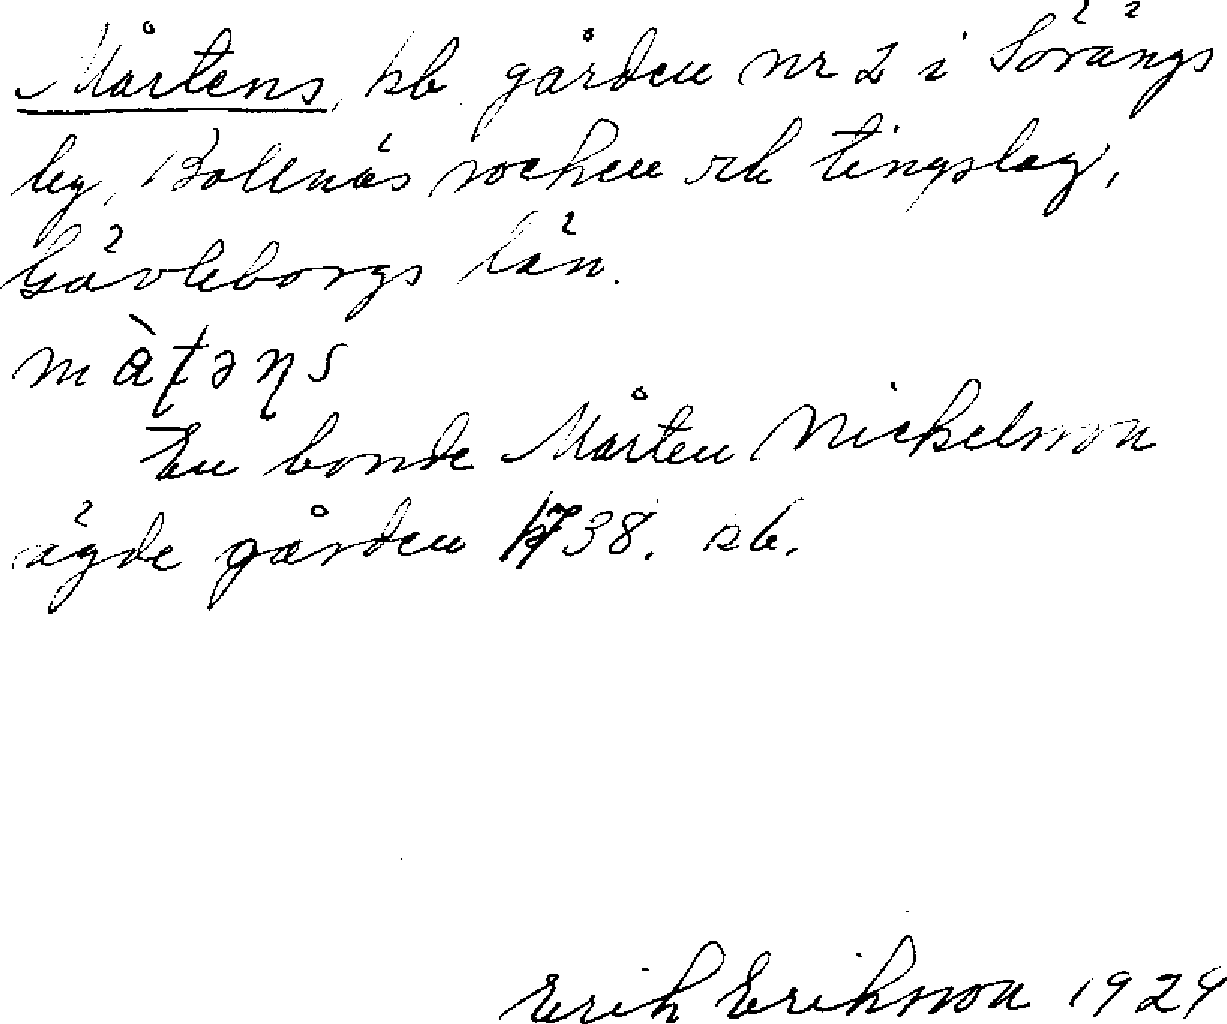 Mårtens, kb. gården nr 2 i Sörängs
by, Bollnäs socken och tingslag,
Gävleborgs län.
màʈəɳs
En bonde Mårten Nickelsson
ägde gården 1738. kb.
Erik Eriksson 1929